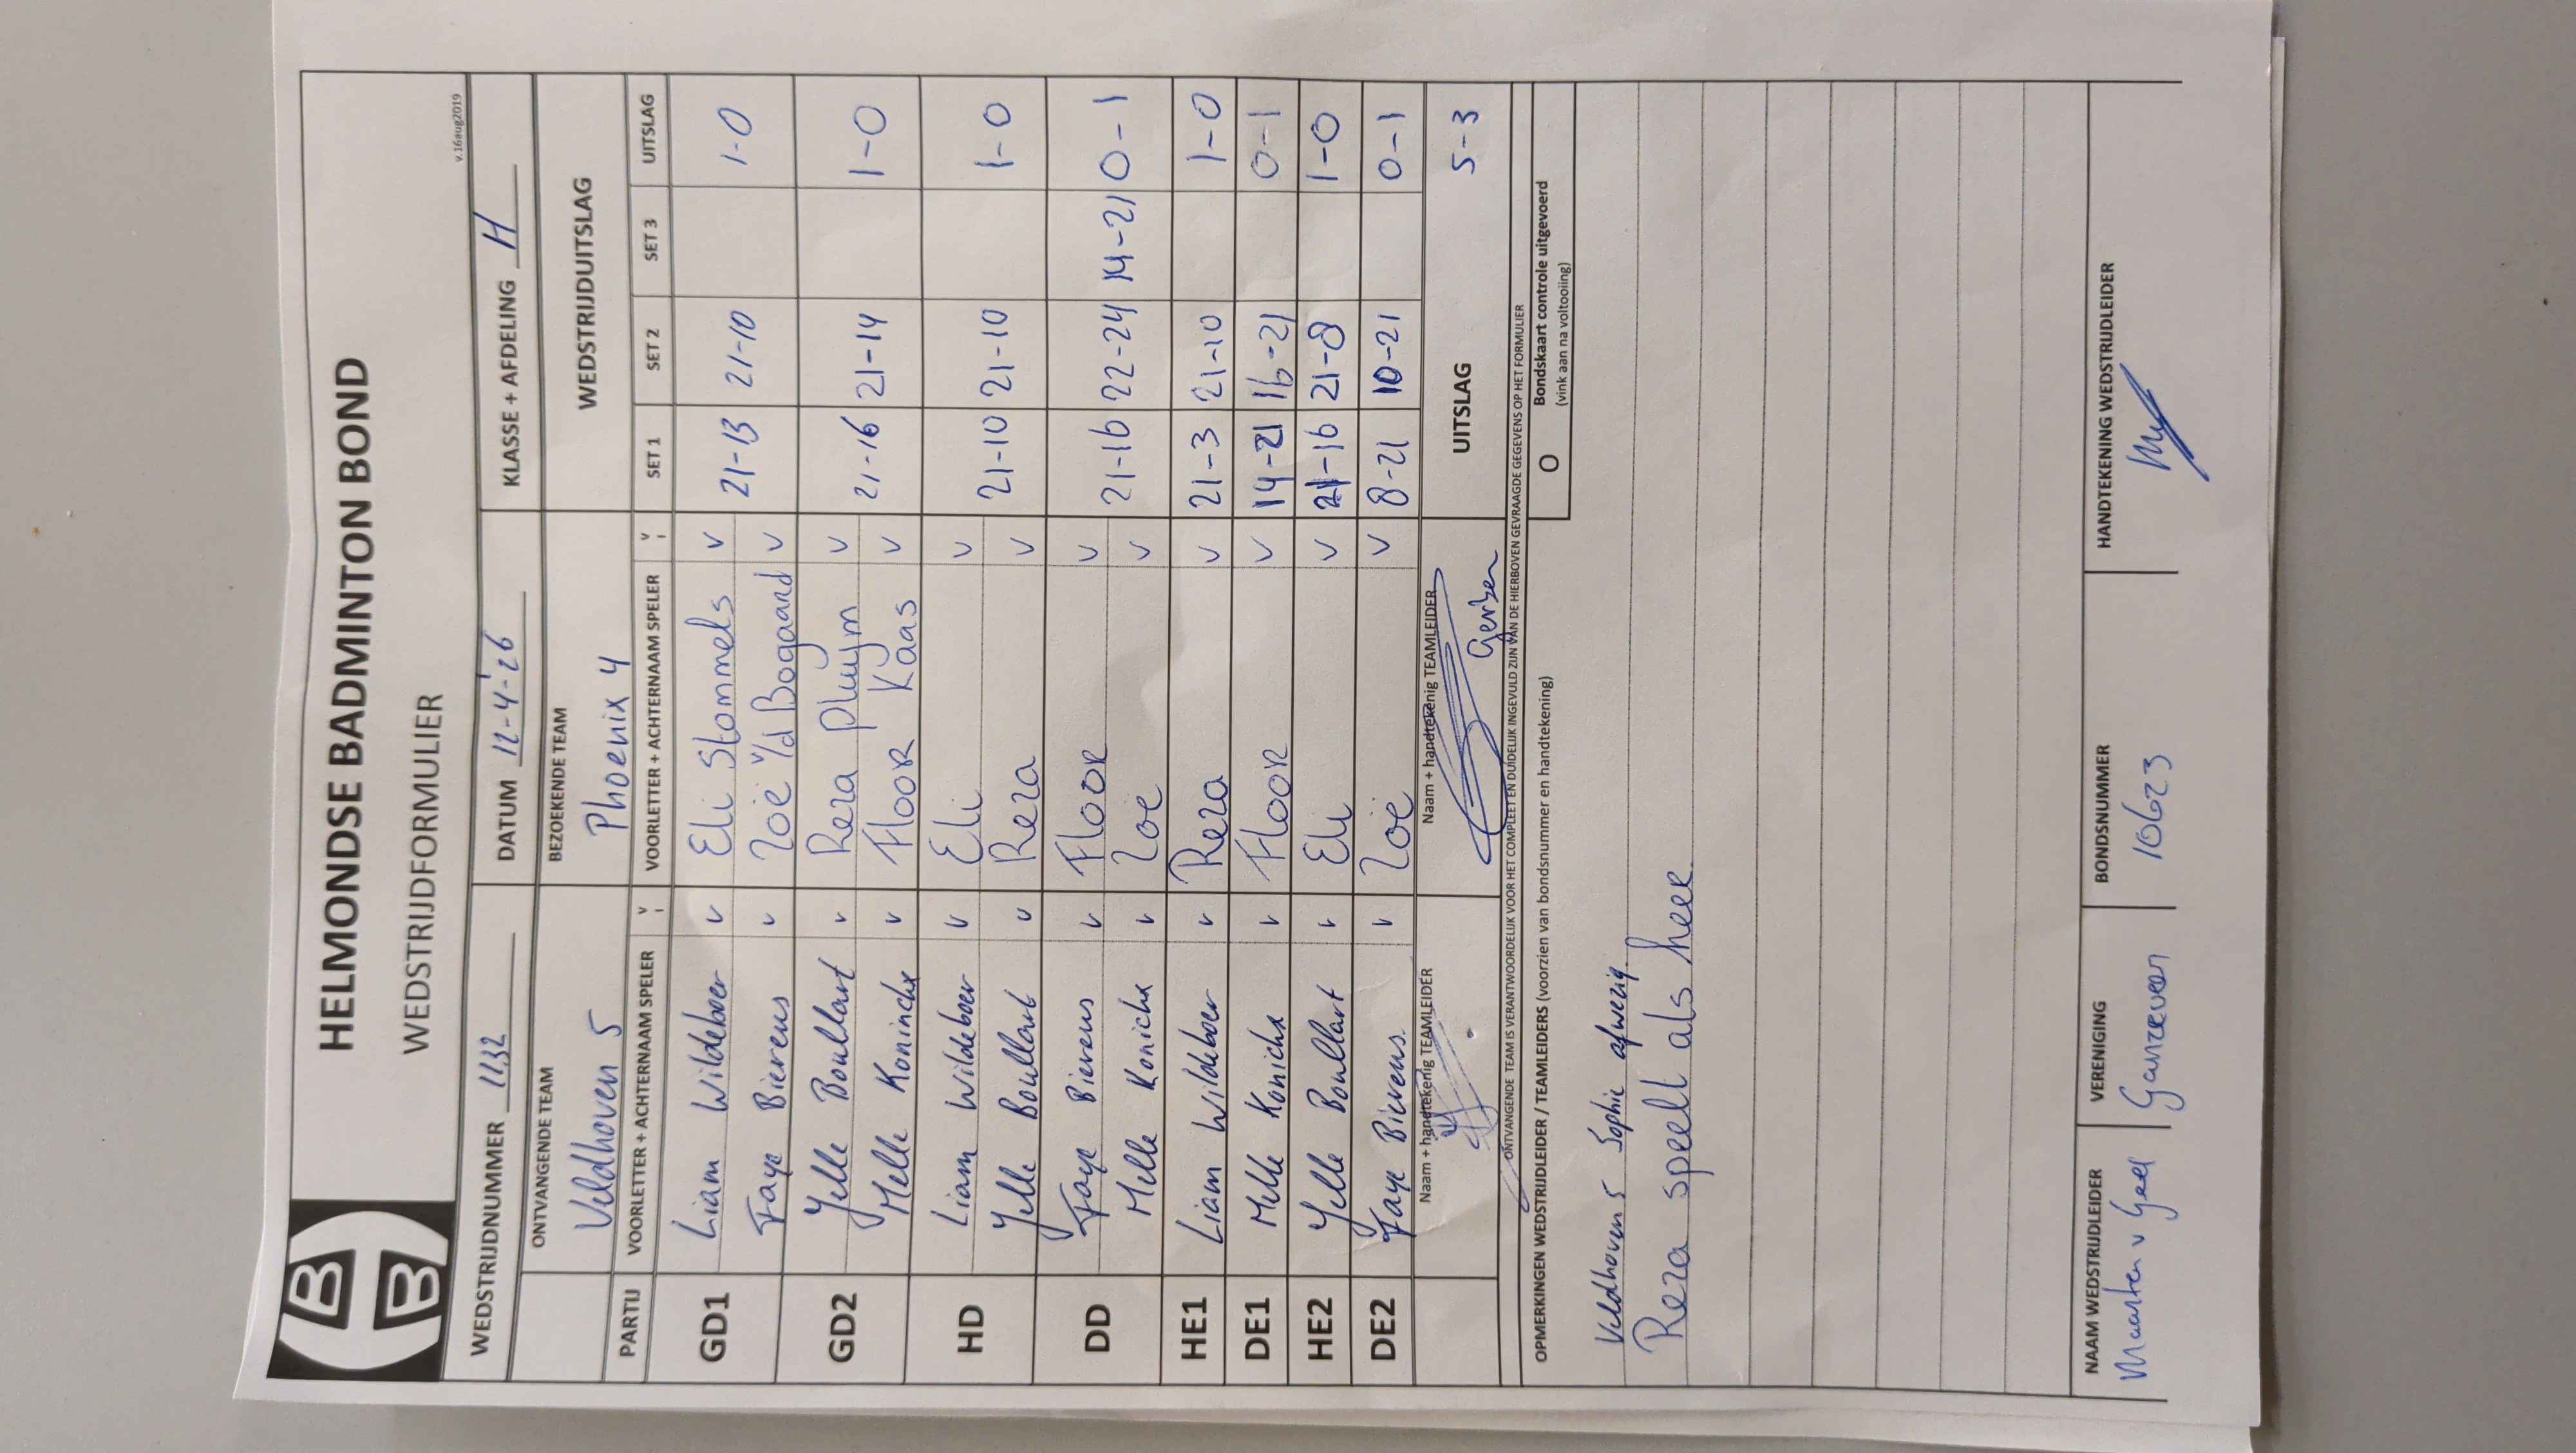 HELMONDSE BADMINTON BOND
WEDSTRIJDFORMULIER
v.16aug2019
WEDSTRIJDNUMMER 1132 DATUM 12-4-'26 KLASSE + AFDELING H
ONTVANGENDE TEAM BEZOEKENDE TEAM WEDSTRIJDUITSLAG
Veldhoven 5 Phoenix 4
PARTIJ VOORLETTER + ACHTERNAAM SPELER V VOORLETTER + ACHTERNAAM SPELER V SET 1 SET 2 SET 3 UITSLAG
GD1 Liam Wildeboer v Eli Stommels v 21-13 21-10 1-0
Faye Bierens v Zoë v/d Bogaard v
GD2 Yelle Boullart v Reza Pluijm v 21-16 21-14 1-0
Melle Koninckx v Floor Kaas v
HD Liam Wildeboer v Eli v 21-10 21-10 1-0
Yelle Boullart v Reza v
DD Faye Bierens v Floor v 21-16 22-24 14-21 0-1
Melle Konickx v Zoë v
HE1 Liam Wildeboer v Reza v 21-3 21-10 1-0
DE1 Melle Konickx v Floor v 14-21 16-21 0-1
HE2 Yelle Boullart v Eli v 21-16 21-8 1-0
DE2 Faye Bierens. v Zoë v 8-21 10-21 0-1
Naam + handtekenig TEAMLEIDER Naam + handtekenig TEAMLEIDER UITSLAG 5-3
Gerben
ONTVANGENDE TEAM IS VERANTWOORDELIJK VOOR HET COMPLEET EN DUIDELIJK INGEVULD ZIJN VAN DE HIERBOVEN GEVRAAGDE GEGEVENS OP HET FORMULIER
OPMERKINGEN WEDSTRIJDLEIDER / TEAMLEIDERS (voorzien van bondsnummer en handtekening) O Bondskaart controle uitgevoerd
(vink aan na voltooiing)
Veldhoven 5 Sophie afwezig.
Reza speelt als heer.
NAAM WEDSTRIJDLEIDER VERENIGING BONDSNUMMER HANDTEKENING WEDSTRIJDLEIDER
Maarten v Geel Ganzeveer 10623